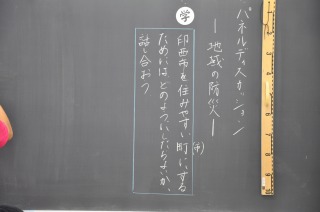 パネルディスカッション
ー地域の防災ー
学
印西市を住みやすい町にする
(市)
ためには、どのようにしたらよいか、
話し合おう